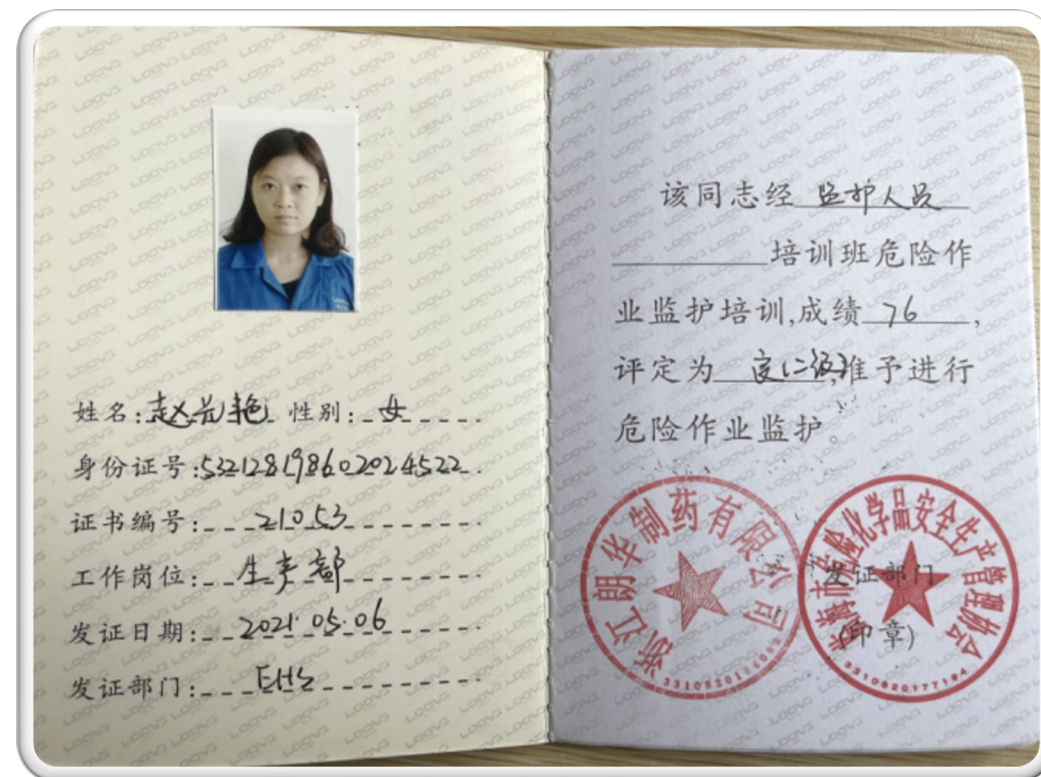 姓名:赵兰艳 性别:女
身份证号:532128198602024522
证书编号:21053
工作岗位:生产部
发证日期:2021.05.06
发证部门:EHS
该同志经 监护人员
培训班危险作
业监护培训,成绩 76 ,
评定为 准予进行
危险作业监护。
浙江朗华制药有限公司
临海市危险化学品安全生产管理协会
发证部门
(印章)
LOGVG